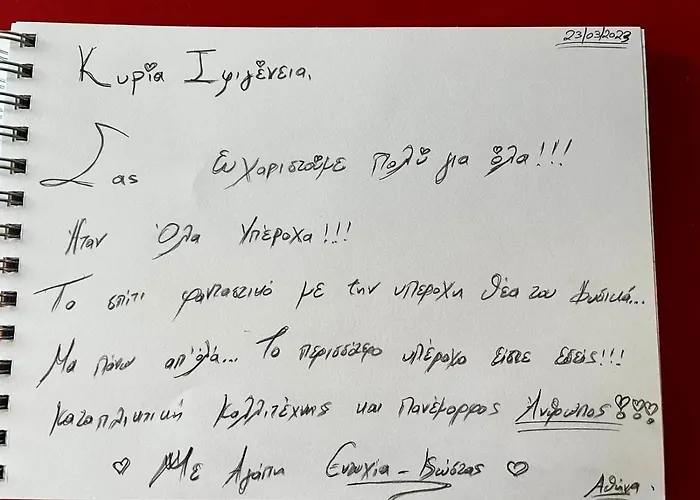 23/03/2023
Κυρία Ιφιγένεια,
Σας Ευχαριστούμε πολύ για όλα!!!
Ήταν Όλα Υπέροχα!!!
Το σπίτι φανταστικό με την υπέροχη θέα του φυσικά...
Μα πάνω απ' όλα... Το περισσότερο υπέροχο είστε εσείς!!!
Καταπληκτική Καλλιτέχνης και Πανέμορφος Άνθρωπος
Με Αγάπη Ευτυχία - Κώστας
Αθήνα.